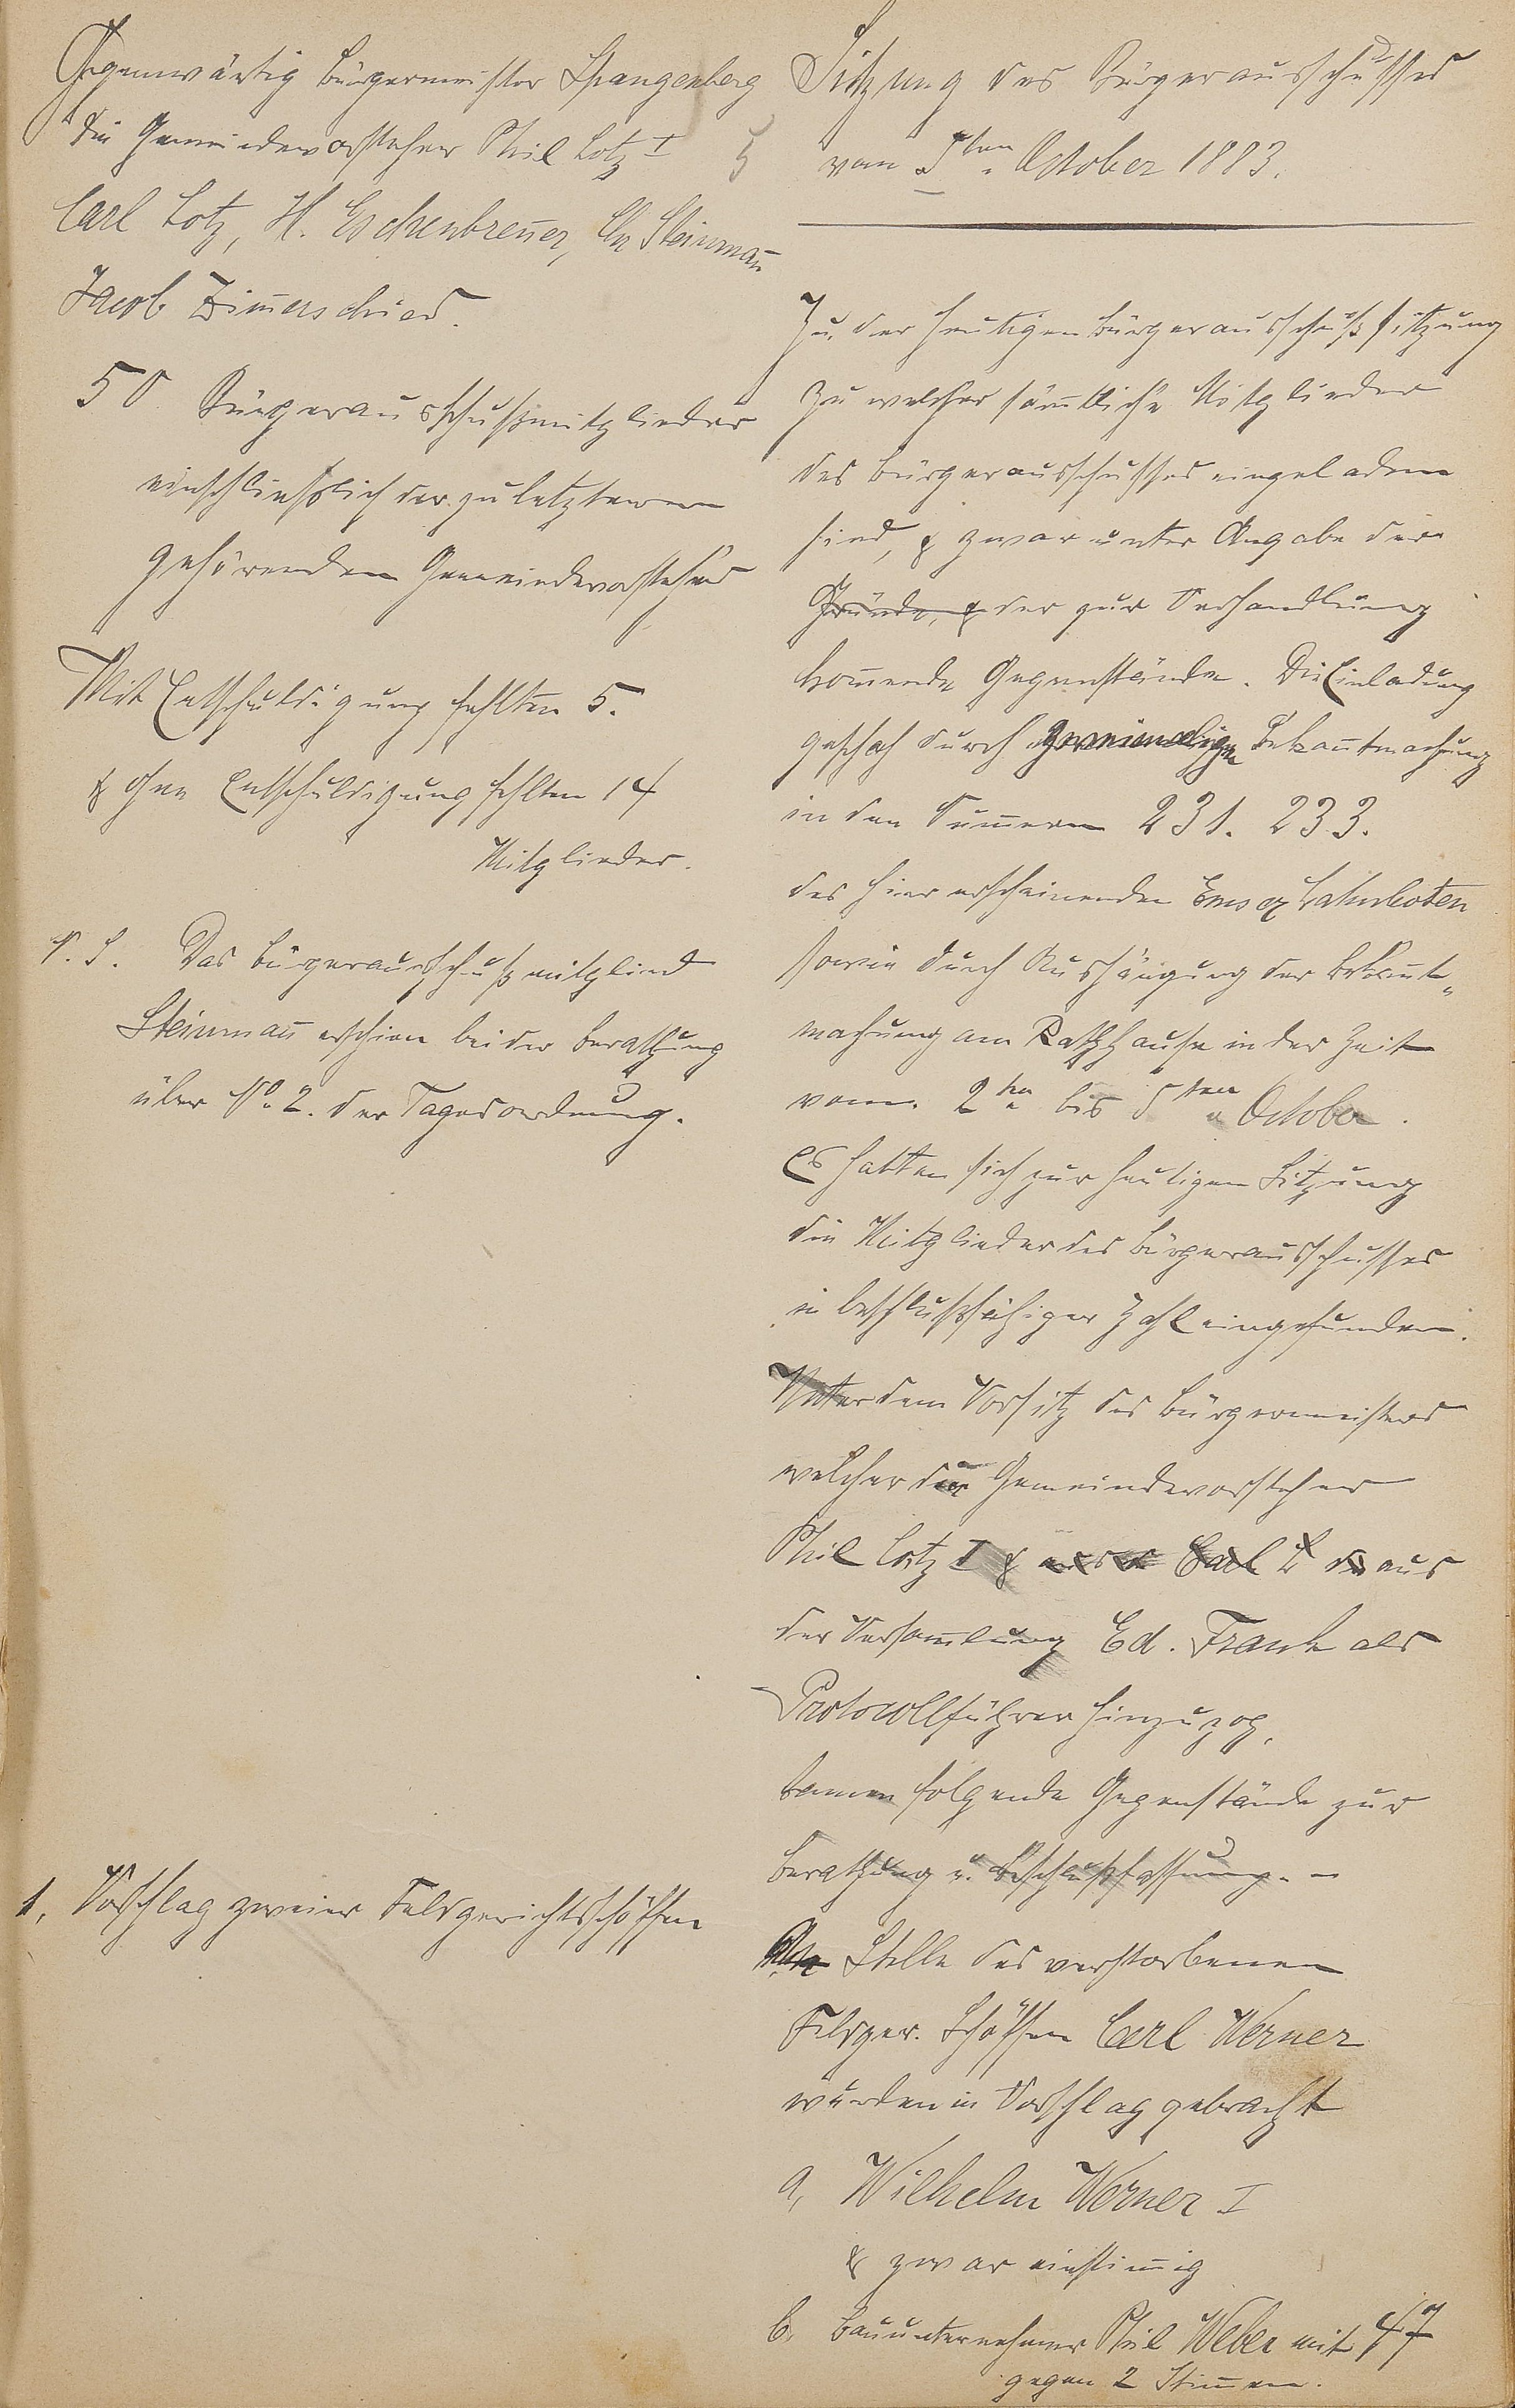 Gegenwärtig Bürgermeister Spangenberg
die Gemeindevorsteher Phil Lotz I
Carl Lotz, H. Eschenbreñer, Chr Steinmañ
Jacob Zim̄erschied.
50 Bürgerausschußmitglieder
einschließlich der zu letzteren
gehörenden Gemeindevorsteher
Mit Entschuldigung fehlten 5.
& ohne Entschuldigung fehlten 14
Mitglieder.
N. S. Das Bürgerausschußmitglied
Steinmañ erschien bei der Berathung
über No 2. der Tagesordnung.
1, Vorschlag zweier Feldgerichtsschöffen
Sitzung des Bürgerausschußes
vom 5ten October 1883.
Zu der heutigen Bürgerausschußsitzung
zu welcher säm̄tliche Mitglieder
des Bürgerausschusses eingeladen
sind, & zwar unter Angabe der
Gründe, & der zur Verhandlung
kom̄ende Gegenstände. Die Einladung
geschah durch zweimalige Bekañtmachung
in den Num̄ern 231. 233.
des hier erscheinenden Emser Lahnboten
sowie durch Aushängung der Bekañt„
machung am Rathhause in der Zeit
vom 2ten bis 5ten October.
Es hatten sich zur heutigen Sitzung
die Mitglieder des Bürgerausschusses
in beschlußfähiger Zahl eingefunden.
Unter dem Vorsitz des Bürgermeisters
welcher die Gemeindevorsteher
Phil Lotz I & aus
der Versam̄lung Ed. Frank als
Protocollführer hinzuzog,
kamen folgende Gegenstände zur
Berathung u. Beschlußfassung. –
An Stelle des verstorbenen
Feldger. Schöffen Carl Werner
wurden in Vorschlag gebracht
a, Wilhelm Werner I
& zwar einstim̄ig
b, Bauunternehmer Phil Weber mit 47
gegen 2 Stim̄en.